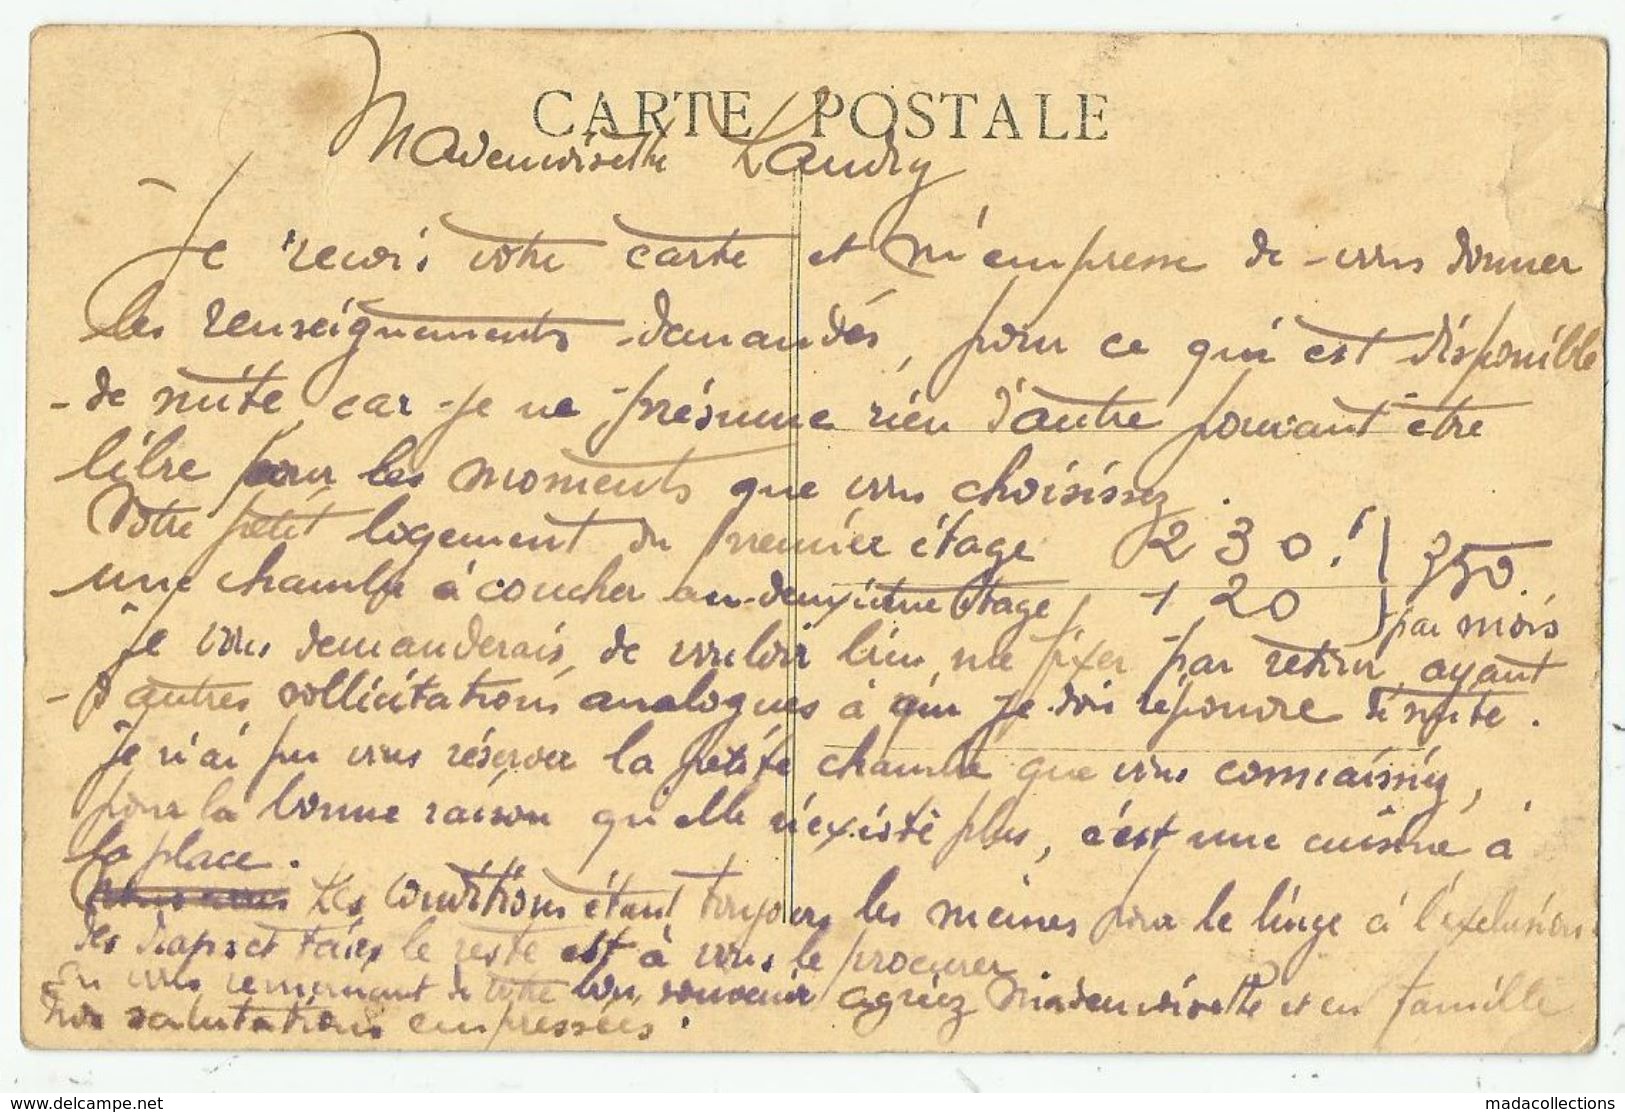 CARTE POSTALE
Mademoiselle Landry
Je reçois votre carte et m'empresse de vous donner
les renseignements demandés, pour ce qui est disponible
de suite, car je ne présume rien d'autre pouvant être
libre pour les moments que vous choisissez.
Votre petit logement du premier étage 230.f } 350.
une chambre à coucher au deuxième étage, 120 } par mois
je vous demanderais, de vouloir bien, me fixer par retour, ayant
d'autres sollicitations analogues à qui je dois répondre de suite.
je n'ai pu vous réserver la petite chambre que vous connaissiez,
pour la bonne raison qu'elle n'existe plus, c'est une cuisine à
la place.
Les conditions étant toujours les mêmes pour le linge à l'exclusion
des draps et taies, le reste est à vous le procurer.
En vous remerciant de votre bon souvenir agréez Mademoiselle et en famille
nos salutations empressées.
www.delcampe.net
madacollections